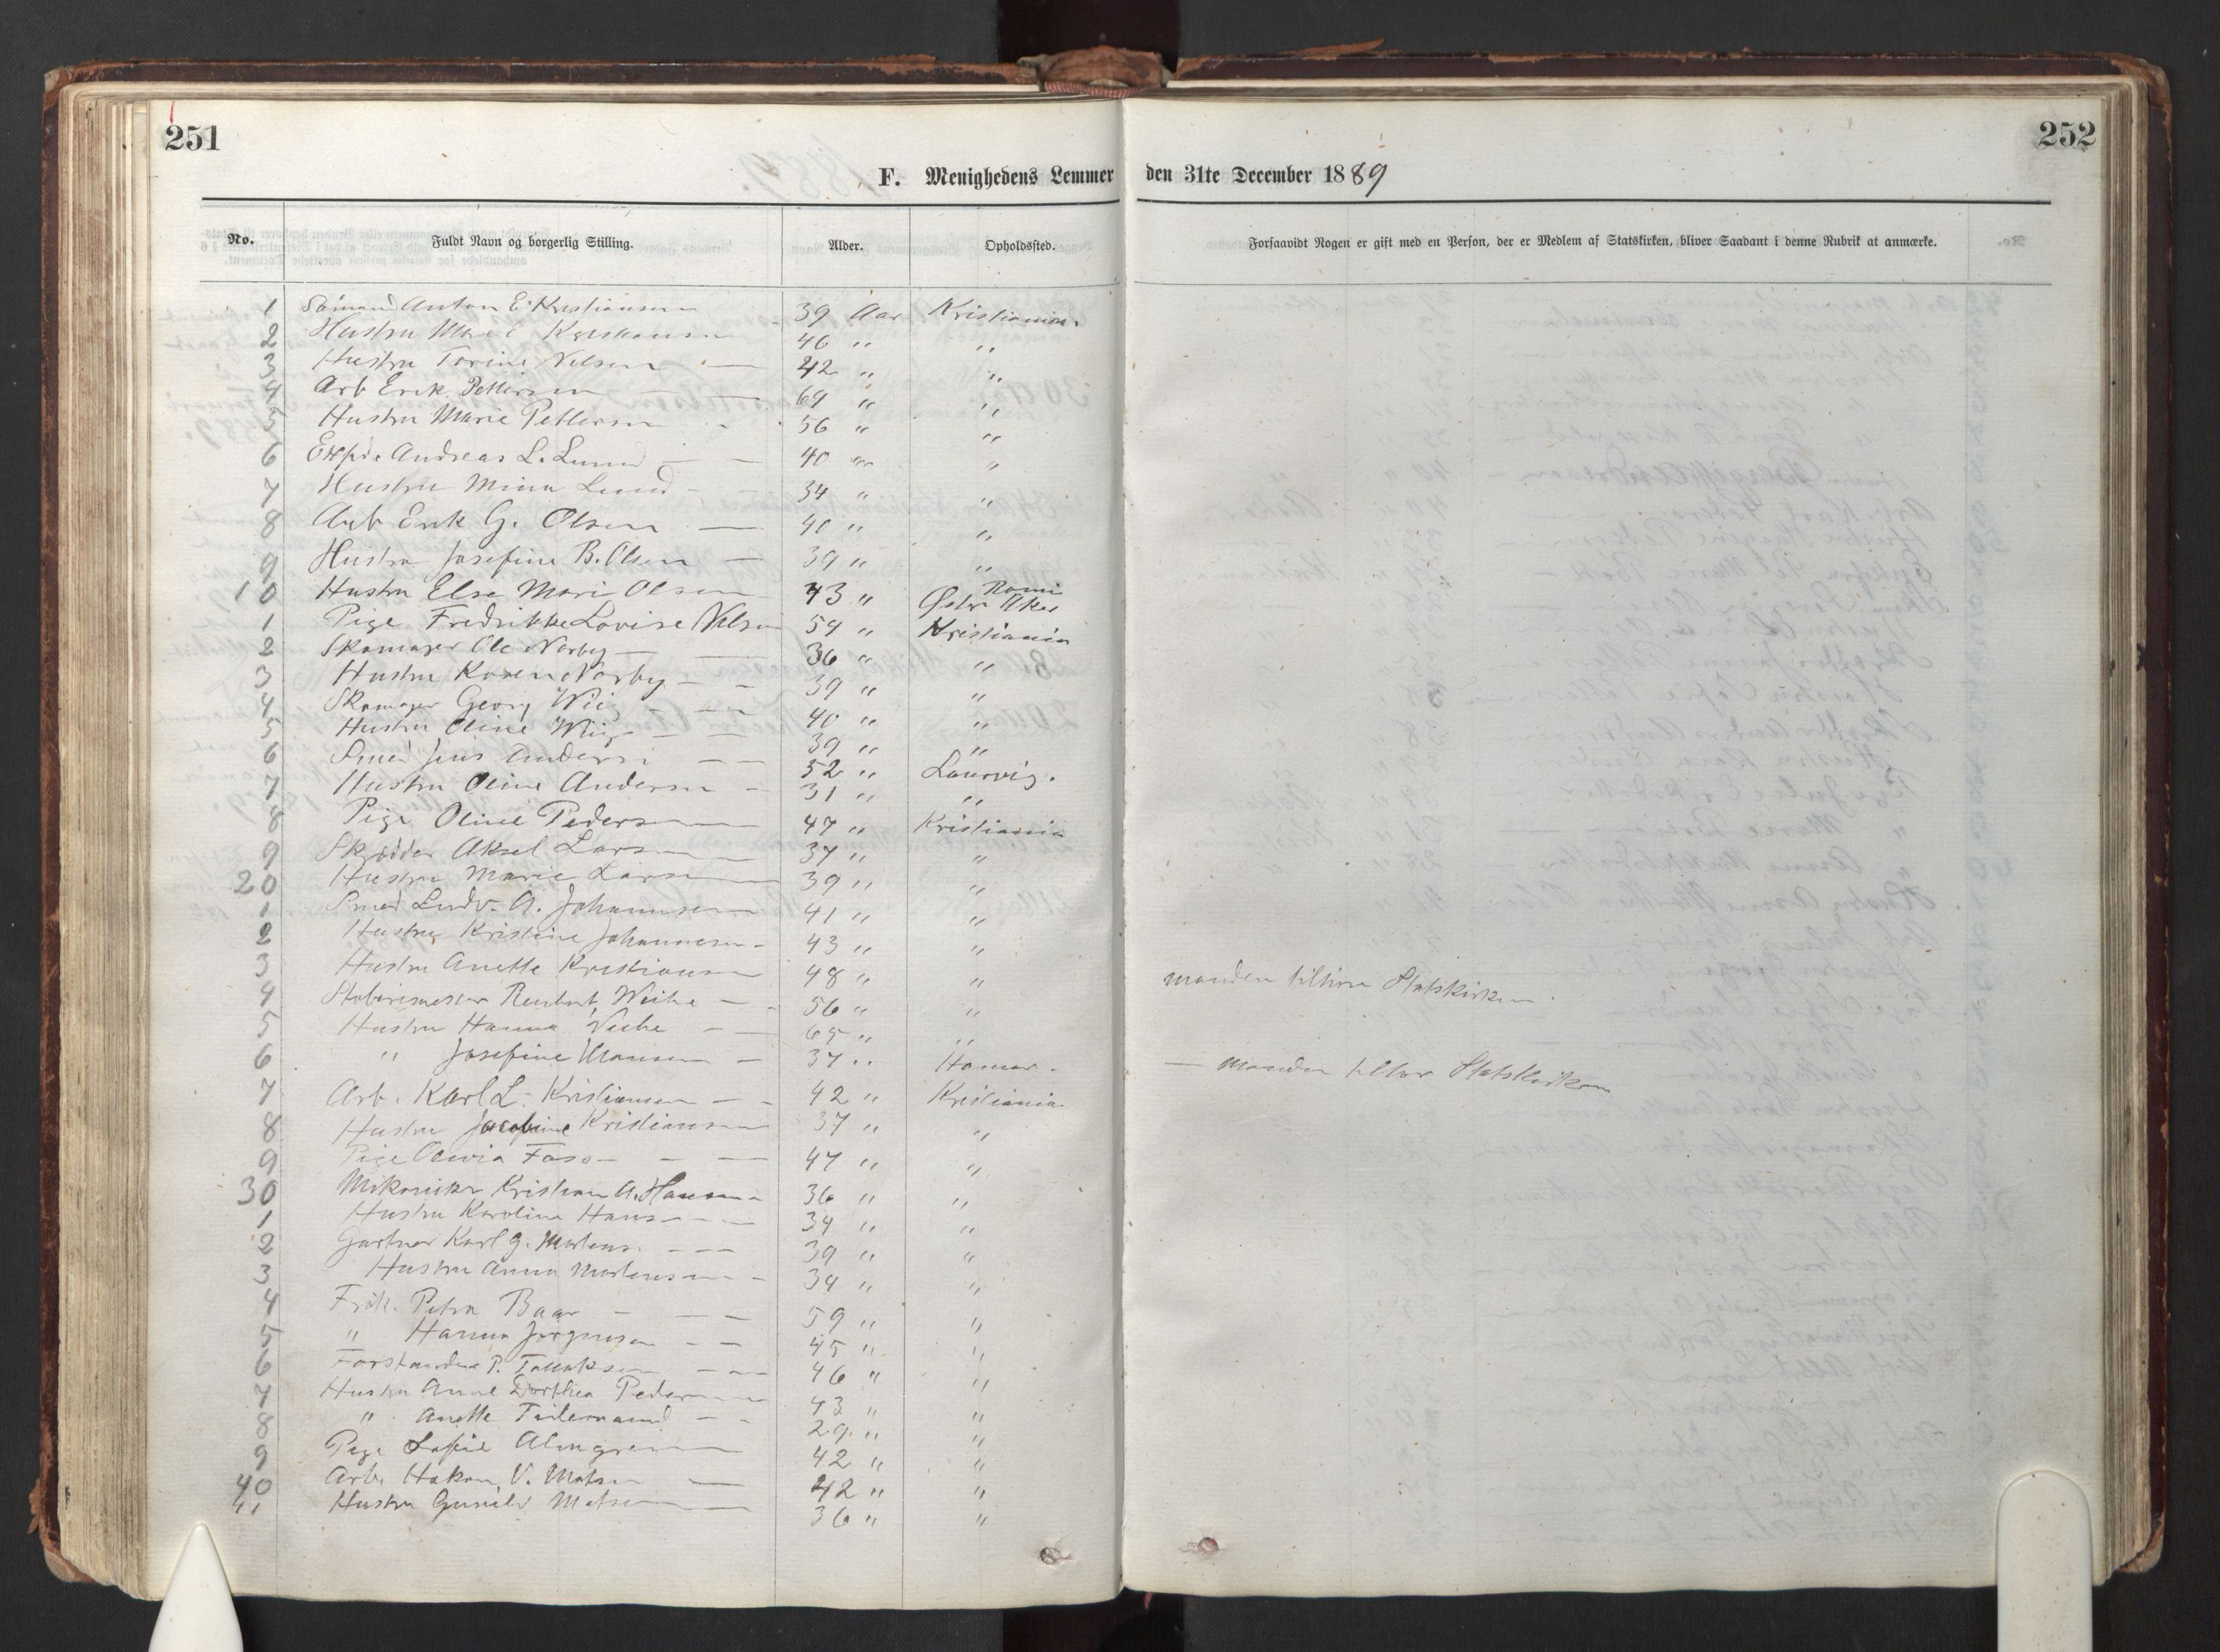 251
252
F. Menighedens Lemmer den 31te December 1889
No. Fuldt Navn og borgerlig Stilling. Alder. Opholdssted. Forsaavidt Nogen er gift med en Person, der er Medlem af Statskirken, bliver Saadant i denne Rubrik at anmærke.
1 Sømand Anton E. Kristiansen 39 Aar Kristiania.
2 Hustru Kristiansen 46 " "
3 Hustru Torine Nilsen — 42 " "
4 Arb Erik Pettersen — 64 " "
5 Hustru Marie Pettersen - 56 " "
6 Andreas L. Lund — — 40 " "
7 Hustru Mina Lund - - 34 " "
8 Arb Erik G. Olsen — 40 " "
9 Hustru Josefine B. Olsen — 39 " "
10 Hustru Else Mari Olsen 43 " Østr Aker
1 Pige Fredrikke Lovise Nilsen 54 " Kristiania
2 Skomager Ole Norby — — 36 " "
3 Hustru Karen Norby — - 39 " "
4 Skomager Georg Wiig - — 40 " "
5 Hustru Oline Wiig — — 39 " "
6 Smed Jens Andersen — — 52 " Laurvig.
7 Hustru Oline Andersen - 31 " "
8 Pige Oline Pedersen — 47 " Kristiania
9 Skrædder Aksel Larsen — 37 " "
20 Hustru Marie Larsen — 39 " "
1 Smed Ludv. A. Johannesen — 41 " "
2 Hustru Kristine Johannesen - 43 " "
3 Hustru Anette Kristiansen 48 " " manden tilhører Statskirken.
4 Weihe — - 56 " "
5 Hustru Hanna Weihe — — 65 " "
6 " Josefine Hansen — 37 " Hamar. — manden tilhør Statskirken
7 Arb. Karl L. Kristiansen — - 42 " Kristiania
8 Hustru Jacobine Kristiansen 37 " "
9 Pige Olivia Foss — - — 47 " "
30 Mekaniker Kristian A. Hansen - 36 " "
1 Hustru Karoline Hansen — - 34 " "
2 Gartner Karl G. Mortensen — — 39 " "
3 Hustru Anna Mortensen - 34 " "
4 Frøk. Petra Baar — — — 59 " "
5 " Hanna Jørgensen — — 45 " "
6 Forstander P. Tallaksen — — 46 " "
7 Hustru Anne Dorthea Pedersen 43 " "
8 " Anette Tidemand — - 29 " "
9 Pige Sofie Almgren — 42 " "
40 Arb. Hakon V. Matsen — 42 " "
41 Hustru Gunild Matsen — 36 " "